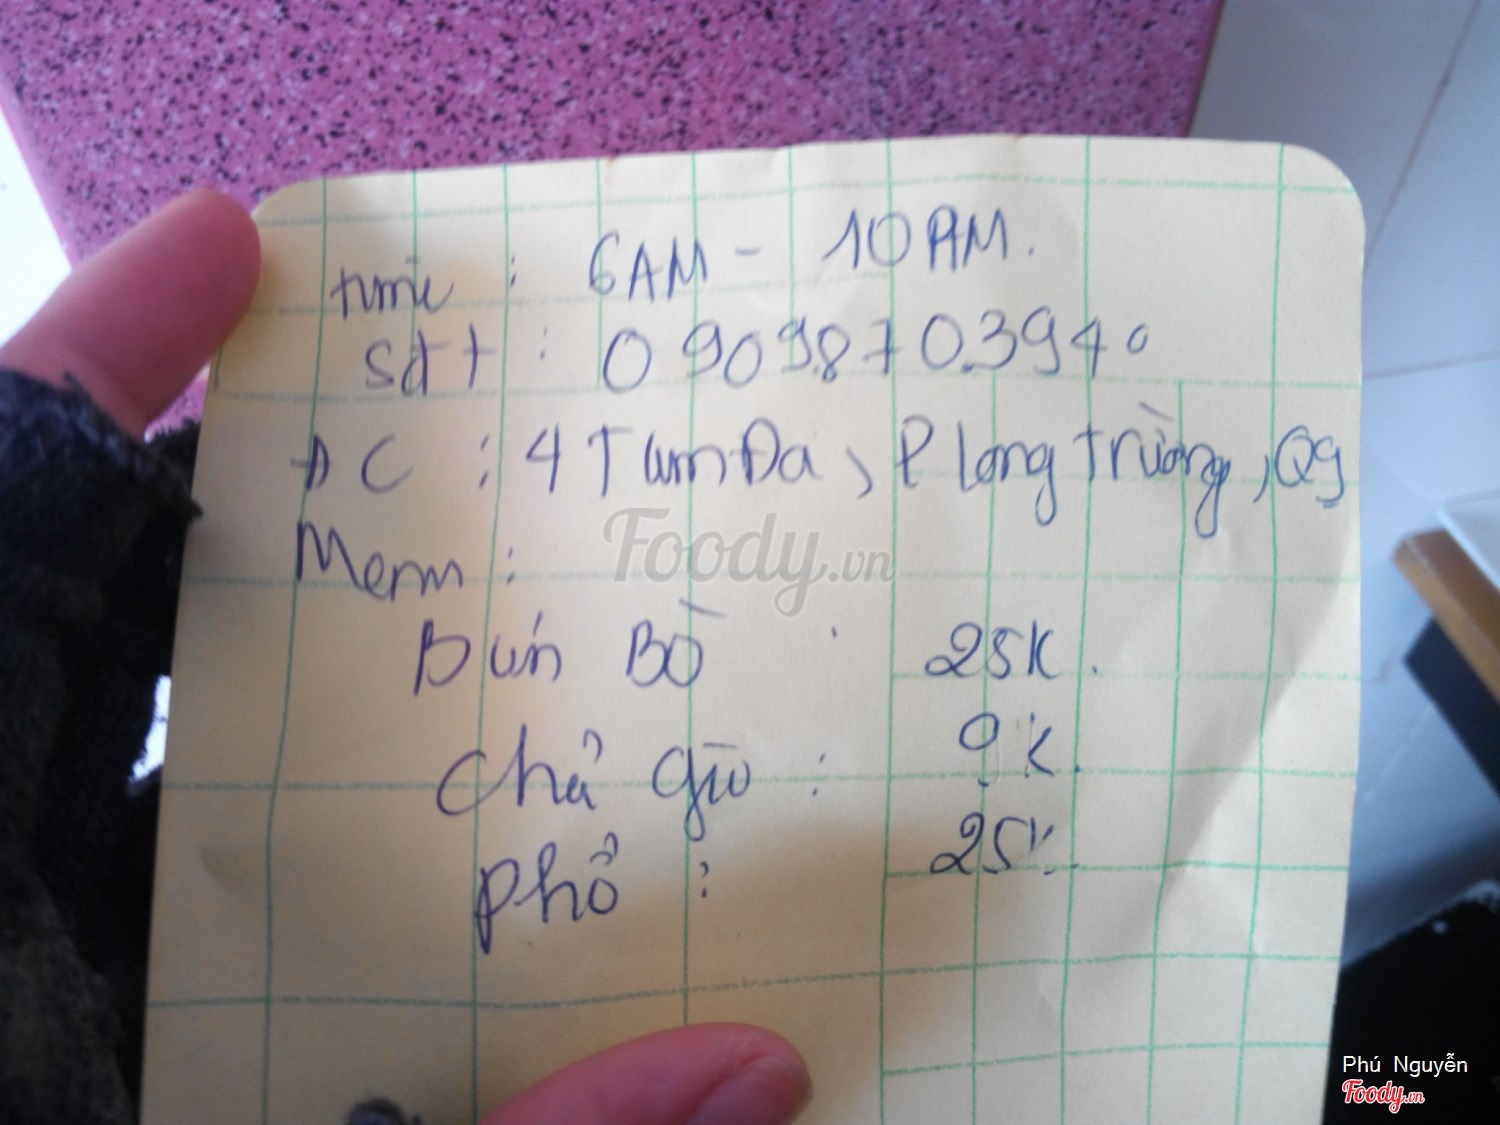 time : 6AM - 10AM.
sđt : 0909.870.3940
ĐC : 4 Tam Đa, P Long Trường, Q9
Menu :
Bún Bò : 25K.
Chả giò : 9K.
Phở : 25K.
Foody.vn
Phú Nguyễn
Foody.vn